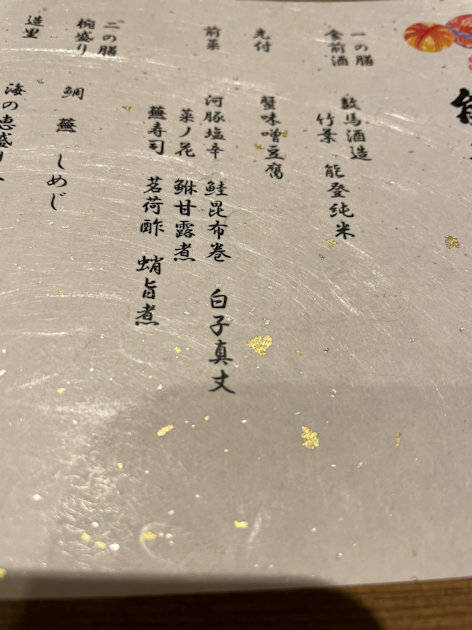 一の膳
食前酒
数馬酒造
竹葉 能登純米
先付
蟹味噌豆腐
前菜
河豚塩辛 鮭昆布巻 白子真丈
菜ノ花 鮴甘露煮
蕪寿司 茗荷酢 蛸旨煮
二の膳
椀盛り
鯛 蕪 しめじ
造里
海の恵盛り